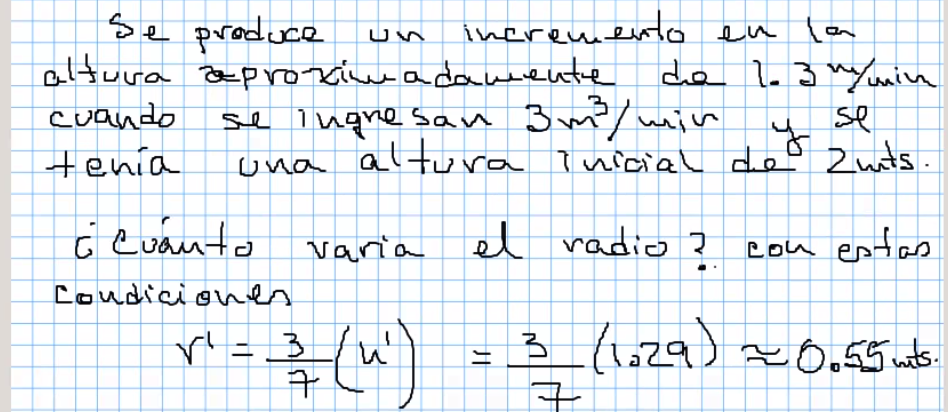 Se produce un incremento en la
altura aproximadamente de 1.3 m/min
cuando se ingresan 3m³/min y se
tenía una altura inicial de 2mts.
¿Cuánto varia el radio? con estas
condiciones
r' = 3/7 (h') = 3/7 (1.29) ≈ 0.55 mts.